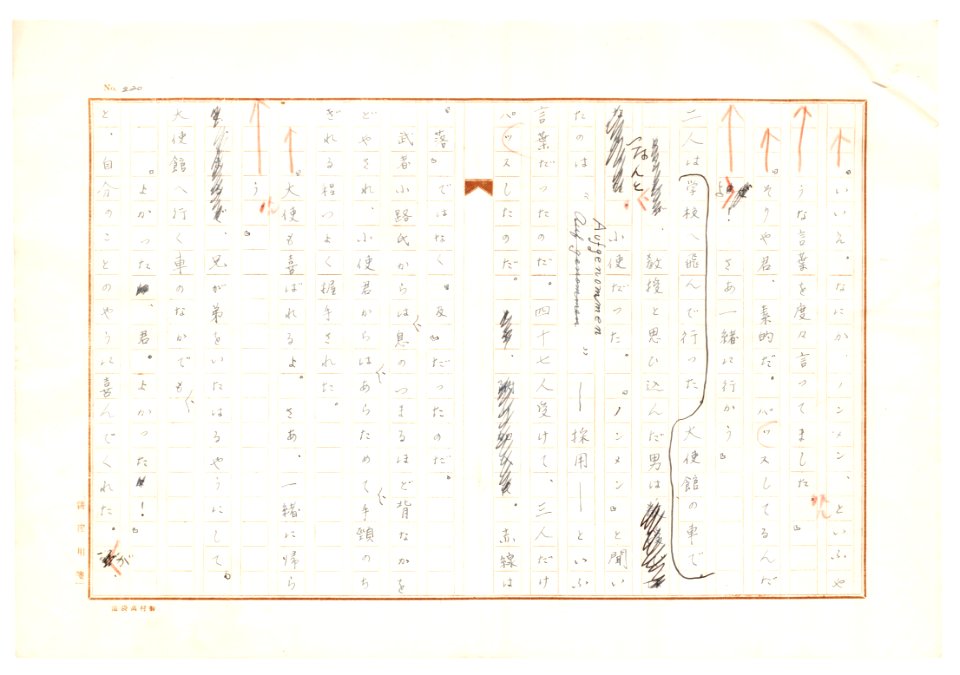 No. 220
『いいえ。なにか、ノンメン、といふや
うな言葉を度々言つてました』
『そりや君、素的だ。パッスしてるんだ
よ! さあ一緒に行かう』
二人は学校へ飛んで行つた 大使館の車で。
教授と思ひ込んだ男は
なんと
小使だつた。『ノンメン』と聞い
たのは "Aufgenommen" ——採用——といふ
Aufgenommen
言葉だつたのだ。四十七人受けて、三人だけ
パッスしたのだ。 赤線は
『落』ではなく『及』だつたのだ。
武者小路氏からは息のつまるほど背なかを
どやされ、小使君からはあらためて手頸のち
ぎれる程つよく握手された。
『大使も喜ばれるよ。さあ、一緒に帰ら
う』
兄が弟をいたはるやうにして。
大使館へ行く車のなかでも
『よかつた 君。よかつた!』
と、自分のことのやうに喜んでくれた。
が